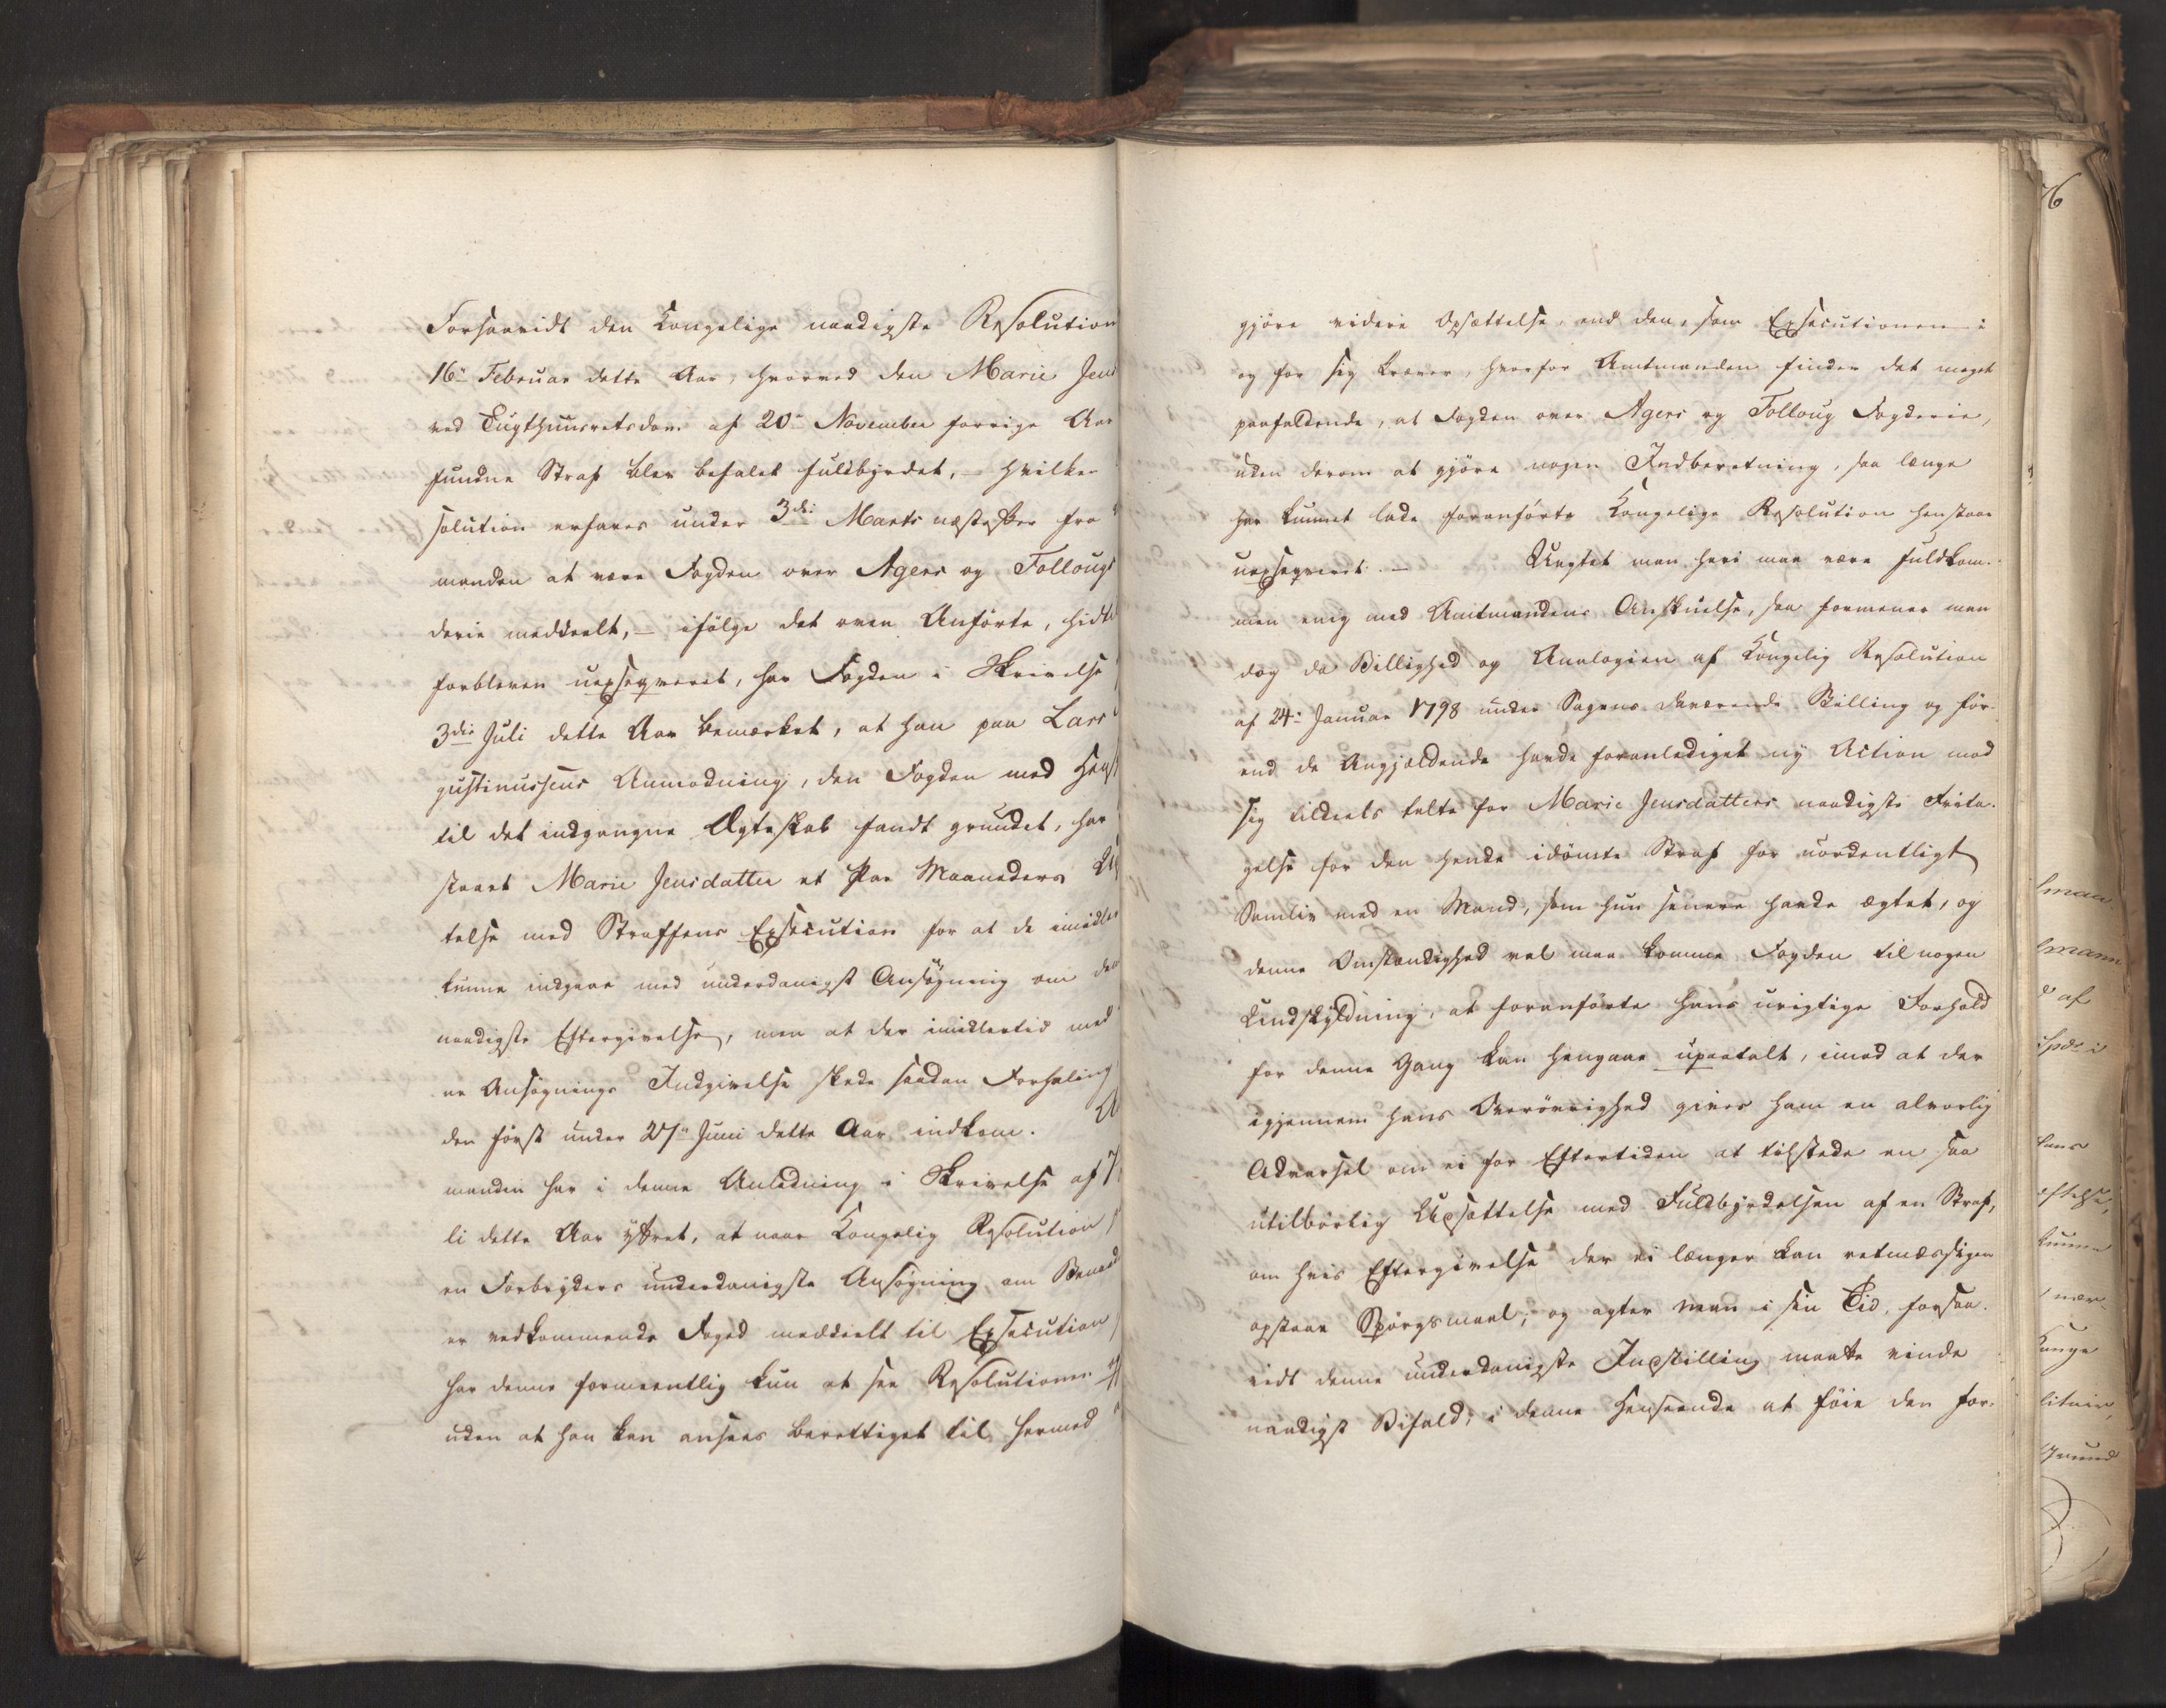 Forsaavidt den Kongelige naadigste Resolution
16de Februar dette Aar, hvorved den Marie Jens
ved Tugthuusretsdom af 20de November forrige Aar
fundne Straf blev befalet fuldbyrdet, – hvilken
solution erfares under 3die Marts næstefter fra
manden at være Fogden over Agers og Follougs
derie meddeelt, – ifølge det oven Anførte, hidtil
forbleven uexseqveret, har Fogden i Skrivelse
3die Juli dette Aar bemærket, at han paa Lars
gustinussens Anmodning, den Fogden med Hens
til det indgangne Ægteskab fandt grundet, har
staaet Marie Jensdatter et Par Maaneders Ud
telse med Straffens Exsecution for at de imidler
kunne indgaae med underdanigst Ansøgning om den
naadigste Eftergivelse, men at der imidlertid med
ne Ansøgnings Indgivelse skede saadan Forhaling
den først under 27de Juni dette Aar indkom. A
manden har i denne Anledning i Skrivelse af 7
li dette Aar yttret, at naar Kongelig Resolution
en Forbryders underdanigste Ansøgning om Benaad
er vedkommende Foged meddeelt til Exsecution
har denne formeentlig kun at see Resolutionen
uden at han kan ansees berettiget til hermed
gjøre videre Opsættelse, end den, som Exsecutionen i
og for sig kræver, hvorfor Amtmanden finder det meget
paafaldende, at Fogden over Agers og Folloug Fogderie,
uden derom at gjøre nogen Indberetning, saa længe
har kunnet lade foranførte Kongelige Resolution henstaae
uexseqveret. – Uagtet man heri maa være fuldkom-
men enig med Amtmandens Anskuelse, saa formener man
dog da Billighed og Analogien af Kongelig Resolution
af 24de Januar 1798 under Sagens daværende Stilling og før-
end de Angjældende havde foranlediget ny Action mod
sig tildeels talte for Marie Jensdatters naadigste Frita-
gelse for den hende idømte Straf for uordentligt
Samliv med en Mand, som hun senere havde ægtet, og
denne Omstændighed vel maa komme Fogden til nogen
Undskyldning, at foranførte hans urigtige Forhold
for denne Gang kan hengaae upaatalt, imod at der
igjennem hans Overøvrighed gives ham en alvorlig
Advarsel om ei for Eftertiden at tilstede en saa
utilbørlig Udsættelse med Fuldbyrdelsen af en Straf,
om hvis Eftergivelse der ei længer kan retmæssigen
opstaae Spørgsmaal; og agter man i sin Tid, forsaa-
vidt denne underdanigste Indstilling maatte vinde
naadigst Bifald, i denne Henseende at føie den for-
76
d af
kunne
Kunge
Grund